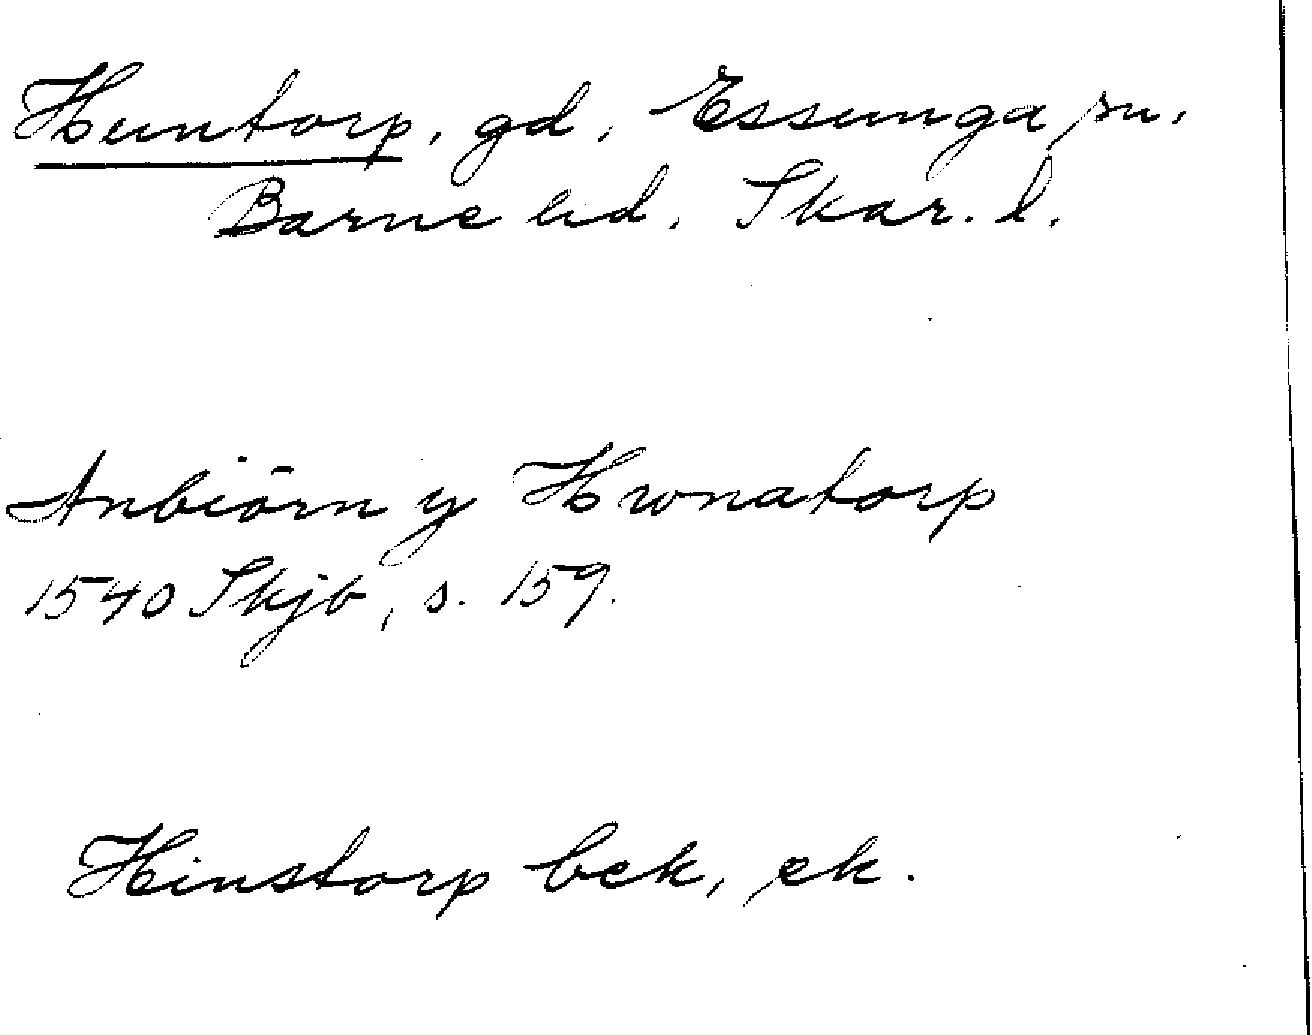 Huntorp, gd, Essunga sn,
Barne hd. Skar. l.
Anbiörn y Hwnatorp
1540 Skjb, s. 159.